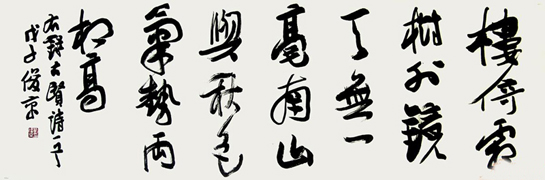 樓倚霜
樹外鏡
天無一
毫南山
與秋色
氣勢兩
相高
右錄古賢詩一首
戊子俊京